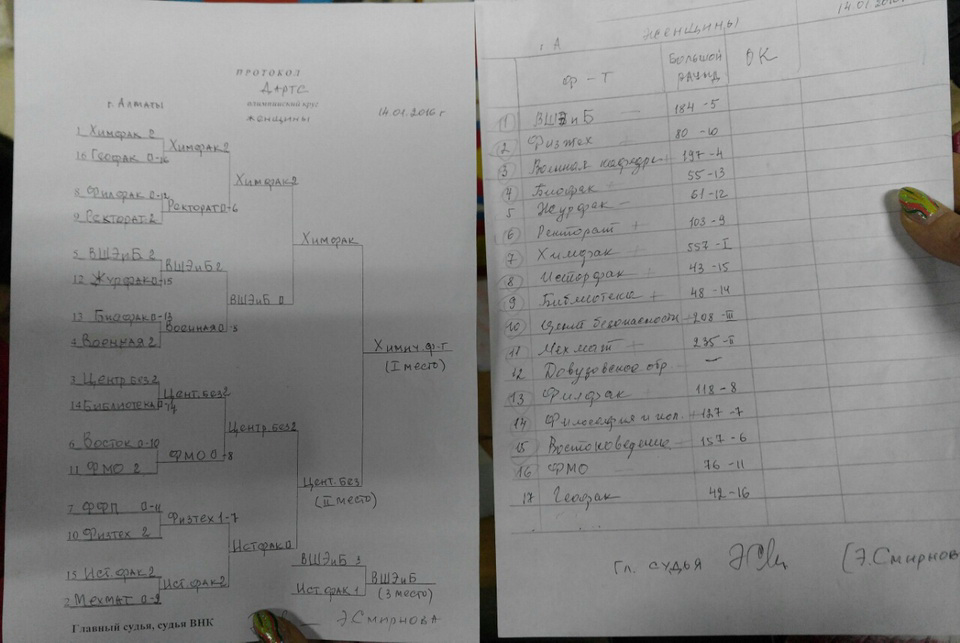 ПРОТОКОЛ
ДАРТС
г. Алматы
олимпийский круг
14.01.2016 г
женщины
1 Химфак 2
Химфак 2
16 Геофак 0-16
Химфак 2
8 Филфак 0-12
Ректорат 0-6
9 Ректорат 2
Химфак
5 ВШЭиБ 2
ВШЭиБ 2
12 Журфак 0-15
ВШЭиБ 0
13 Биофак 0-13
Военная 0-5
4 Военная 2
Химич. ф-т
(I место)
3 Центр. без 2
Цент. без 2
14 Библиотека 0-14
Центр. без 2
6 Восток 0-10
ФМО 0-8
11 ФМО 2
Цент. без
(II место)
7 ФФП 0-11
Физтех 1-7
10 Физтех 2
Истфак 0
15 Ист. фак 2
Ист. фак 2
2 Мехмат 0-9
ВШЭиБ 3
ВШЭиБ
Ист. фак 1
(3 место)
Э. Смирнова
Главный судья, судья ВНК
14.01.2016
женщины
ф-т
Большой раунд
ОК
1 ВШЭиБ 184-5
2 Физтех 80-10
3 Военная кафедра 197-4
4 Биофак 55-13
5 Журфак - 61-12
6 Ректорат + 103-9
7 Химфак + 557-I
8 Исторфак + 43-15
9 Библиотека + 48-14
10 Центр безопасности + 208-III
11 Мехмат + 235-II
12 Довузовское обр. -
13 Филфак 118-8
14 Философия и пол. + 127-7
15 Востоковедение 157-6
16 ФМО 76-11
17 Геофак 42-16
Гл. судья
(Э. Смирнова